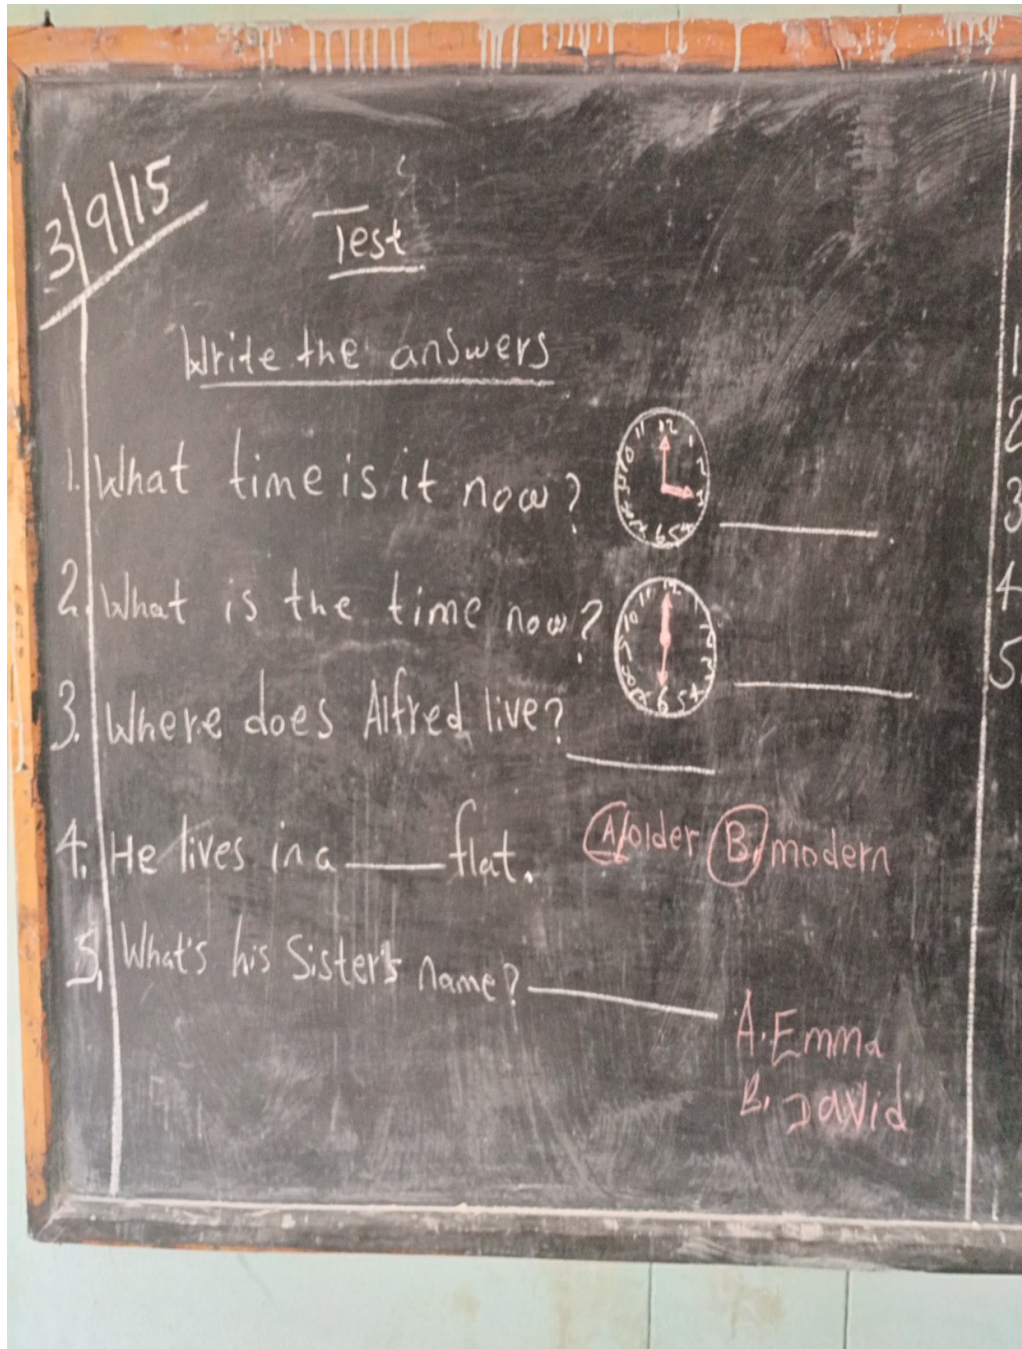 3/9/15
Test
Write the answers
1. What time is it now? ______.
2. What is the time now? ______
3. Where does Alfred live? ______
4. He lives in a ____ flat. A older B. modern
5. What's his Sister's name? ______
A. Emma
B. David
1
2
3
4
5.